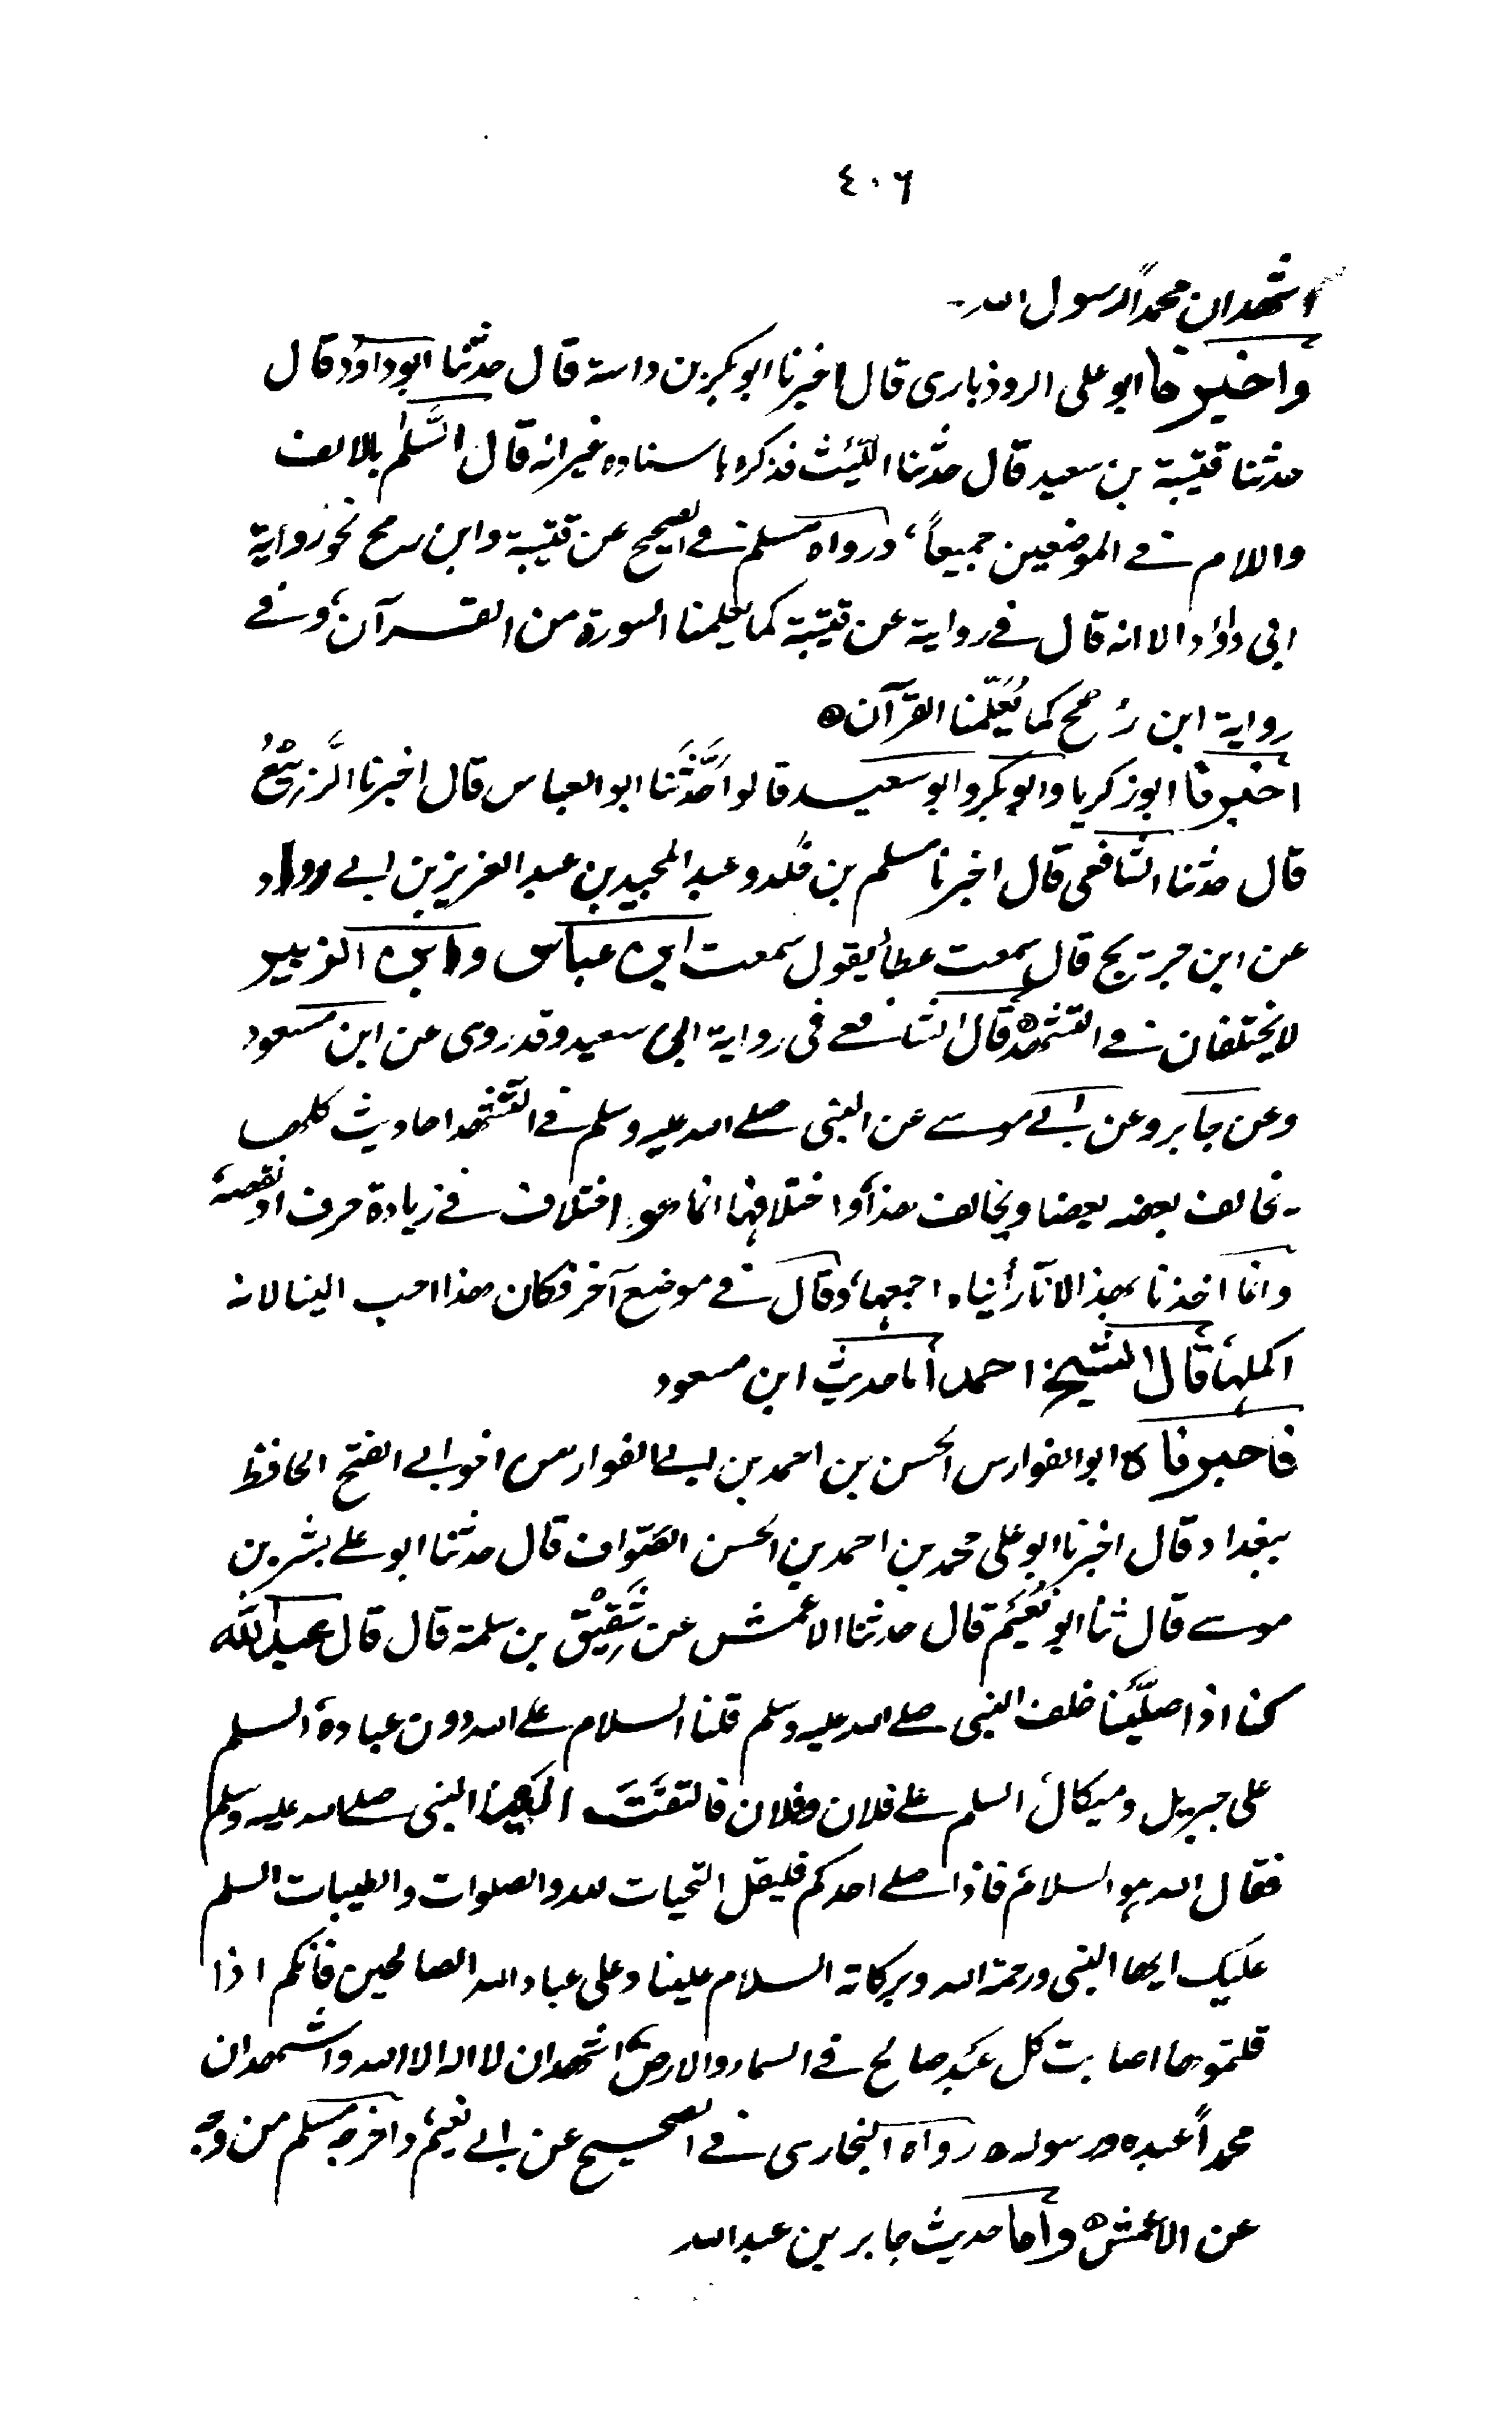 ٤٠٦
اشهد ان محمداً رسول الله -
واخبرنا ابو على الروذبارى قال اخبرنا ابو بكر بن داسة قال حدثنا ابو داؤد قال
حدثنا قتيبة بن سعيد قال حدثنا اللَّيث فذكره باسناده غير انه قال السَّلٰم بالالف
واللام فى الموضعين جميعاً، ورواه مسلم فى الصحيح عن قتيبة وابن رمح نحو رواية
ابى داؤد الا انه قال فى رواية عن قتيبة كما يعلمنا السورة من القرآن، وفى
رواية ابن رُمح كما يُعَلِّمنا القرآن ۞
اخبرنا ابو زكريا وابو بكر وابو سعيد قالوا حَدَّثَنا ابو العباس قال اخبرنا الرَّبِيْعُ
قال حدثنا الشافعى قال اخبرنا مسلم بن خلد وعبد المجيد بن عبد العزيز بن ابى رواد
عن ابن جريج قال سمعت عطأ يقول سمعت ابن عباس وابن الزبير
لا يختلفان فى التشهد ۞ قال الشافعى فى رواية ابى سعيد وقد روى عن ابن مسعود
وعن جابر وعن ابى موسى عن النبى صلى الله عليه وسلم فى التَّشَهد احاديث كلها
يخالف بعضه بعضا ويخالف هذا، واختلافها انما هو اختلاف فى زيادة حرف او نقصه
وانما اخذنا بهذا لانا رأيناه اجمعها، وقال فى موضع آخر فكان هذا احب الينا لانه
اكملها، قال الشيخ احمد اما حديث ابن مسعود
فاخبرناه ابو الفوارس الحسن بن احمد بن ابى الفوارس اخو ابى الفتح الحافظ
ببغداد قال اخبرنا ابو على محمد بن احمد بن الحسن الصَّواف قال حدثنا ابو على بشر بن
موسى قال ثنا ابو نُعَيْم قال حدثنا الاعمش عن شَقِيْق بن سلمة قال قال عبد الله
كنا اذا صلَّينا خلف النبى صلى الله عليه وسلم قلنا السلام على الله دون عباده، السلم
على جبريل وميكال، السلم على فلان وفلان فالتفتَ الينا النبى صلى الله عليه وسلم
فقال الله هو السلام، فاذا صلى احدكم فليقل التحيات لله والصلوات والطيبات السلم
عليك ايها النبى ورحمة الله وبركاته السلام علينا وعلى عباد الله الصالحين فانكم اذا
قلتموها اصابت كل عَبد صالح فى السماء والارض، اشهد ان لا اله الا الله واشهد ان
محمداً عبده ورسوله ۞ رواه البخارى فى الصحيح عن ابى نعيم، واخرجه مسلم من وجه
عن الاعمش ۞ وأما حديث جابر بن عبد الله